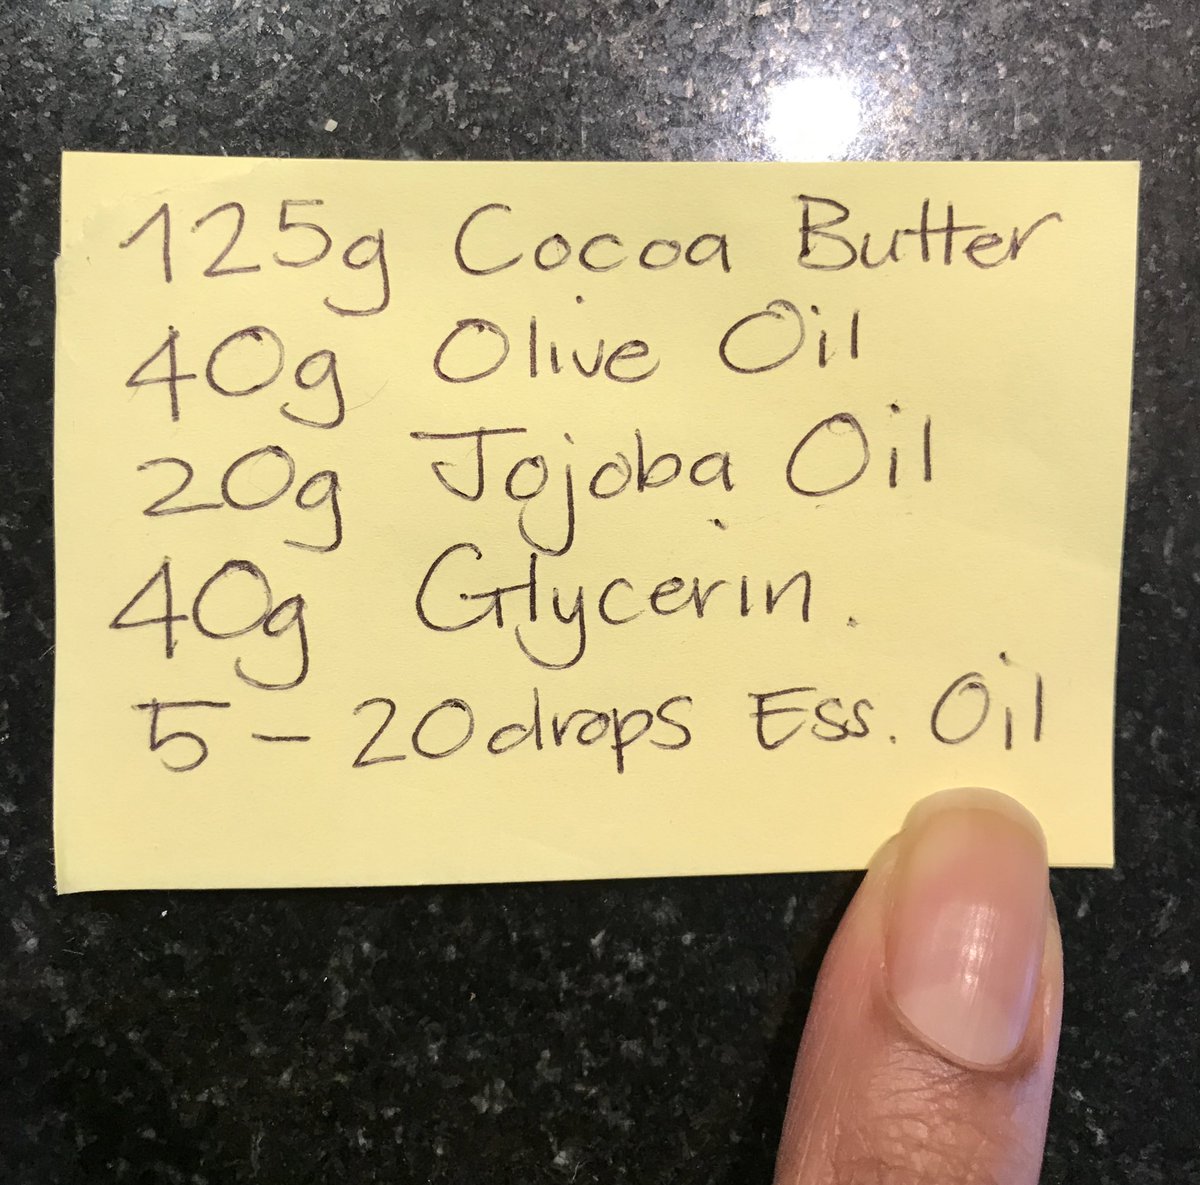 125g Cocoa Butter
40g Olive Oil
20g Jojoba Oil
40g Glycerin.
5 - 20drops Ess. Oil